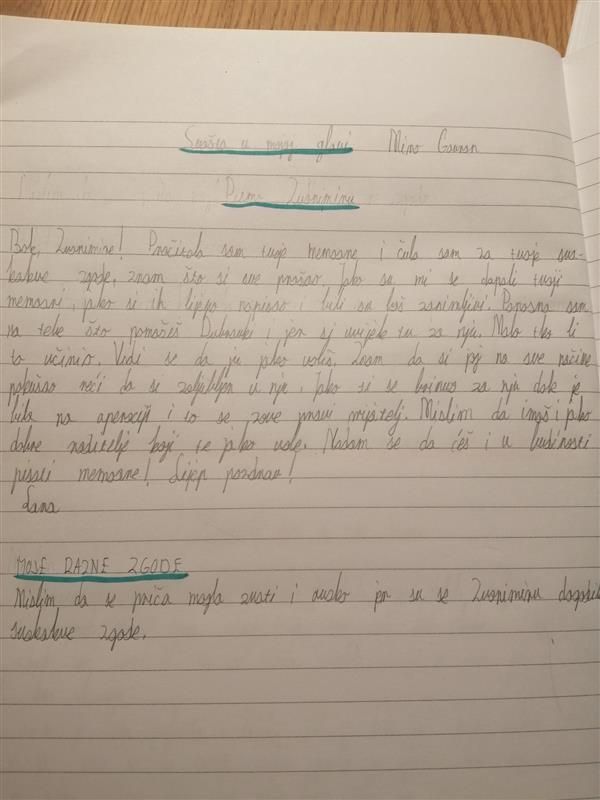 Svašta u mojoj glavi Miro Gavran
Pismo Zvonimiru
Bok, Zvonimire! Pročitala sam tvoje memoare i čula sam za tvoje sva-
kakve zgode, znam što si sve prošao. Jako su mi se dopali tvoji
memoari, jako si ih lijepo napisao i bili su baš zanimljivi. Ponosna sam
na tebe što pomažeš Dubravki i jer si uvijek tu za nju. Malo tko bi
to učinio. Vidi se da ju jako voliš. Znam da si joj na sve načine
pokušao reći da si zaljubljen u nje. Jako si se brinuo za nju dok je
bila na operaciji i to se zove pravi prijatelj. Mislim da imaš i jako
dobre roditelje koji te jako vole. Nadam se da ćeš i u budućnosti
pisati memoare! Lijep pozdrav!
Lana
MOJE RAZNE ZGODE
Mislim da se priča mogla zvati i ovako jer su se Zvonimiru dogodile
svakakve zgode.